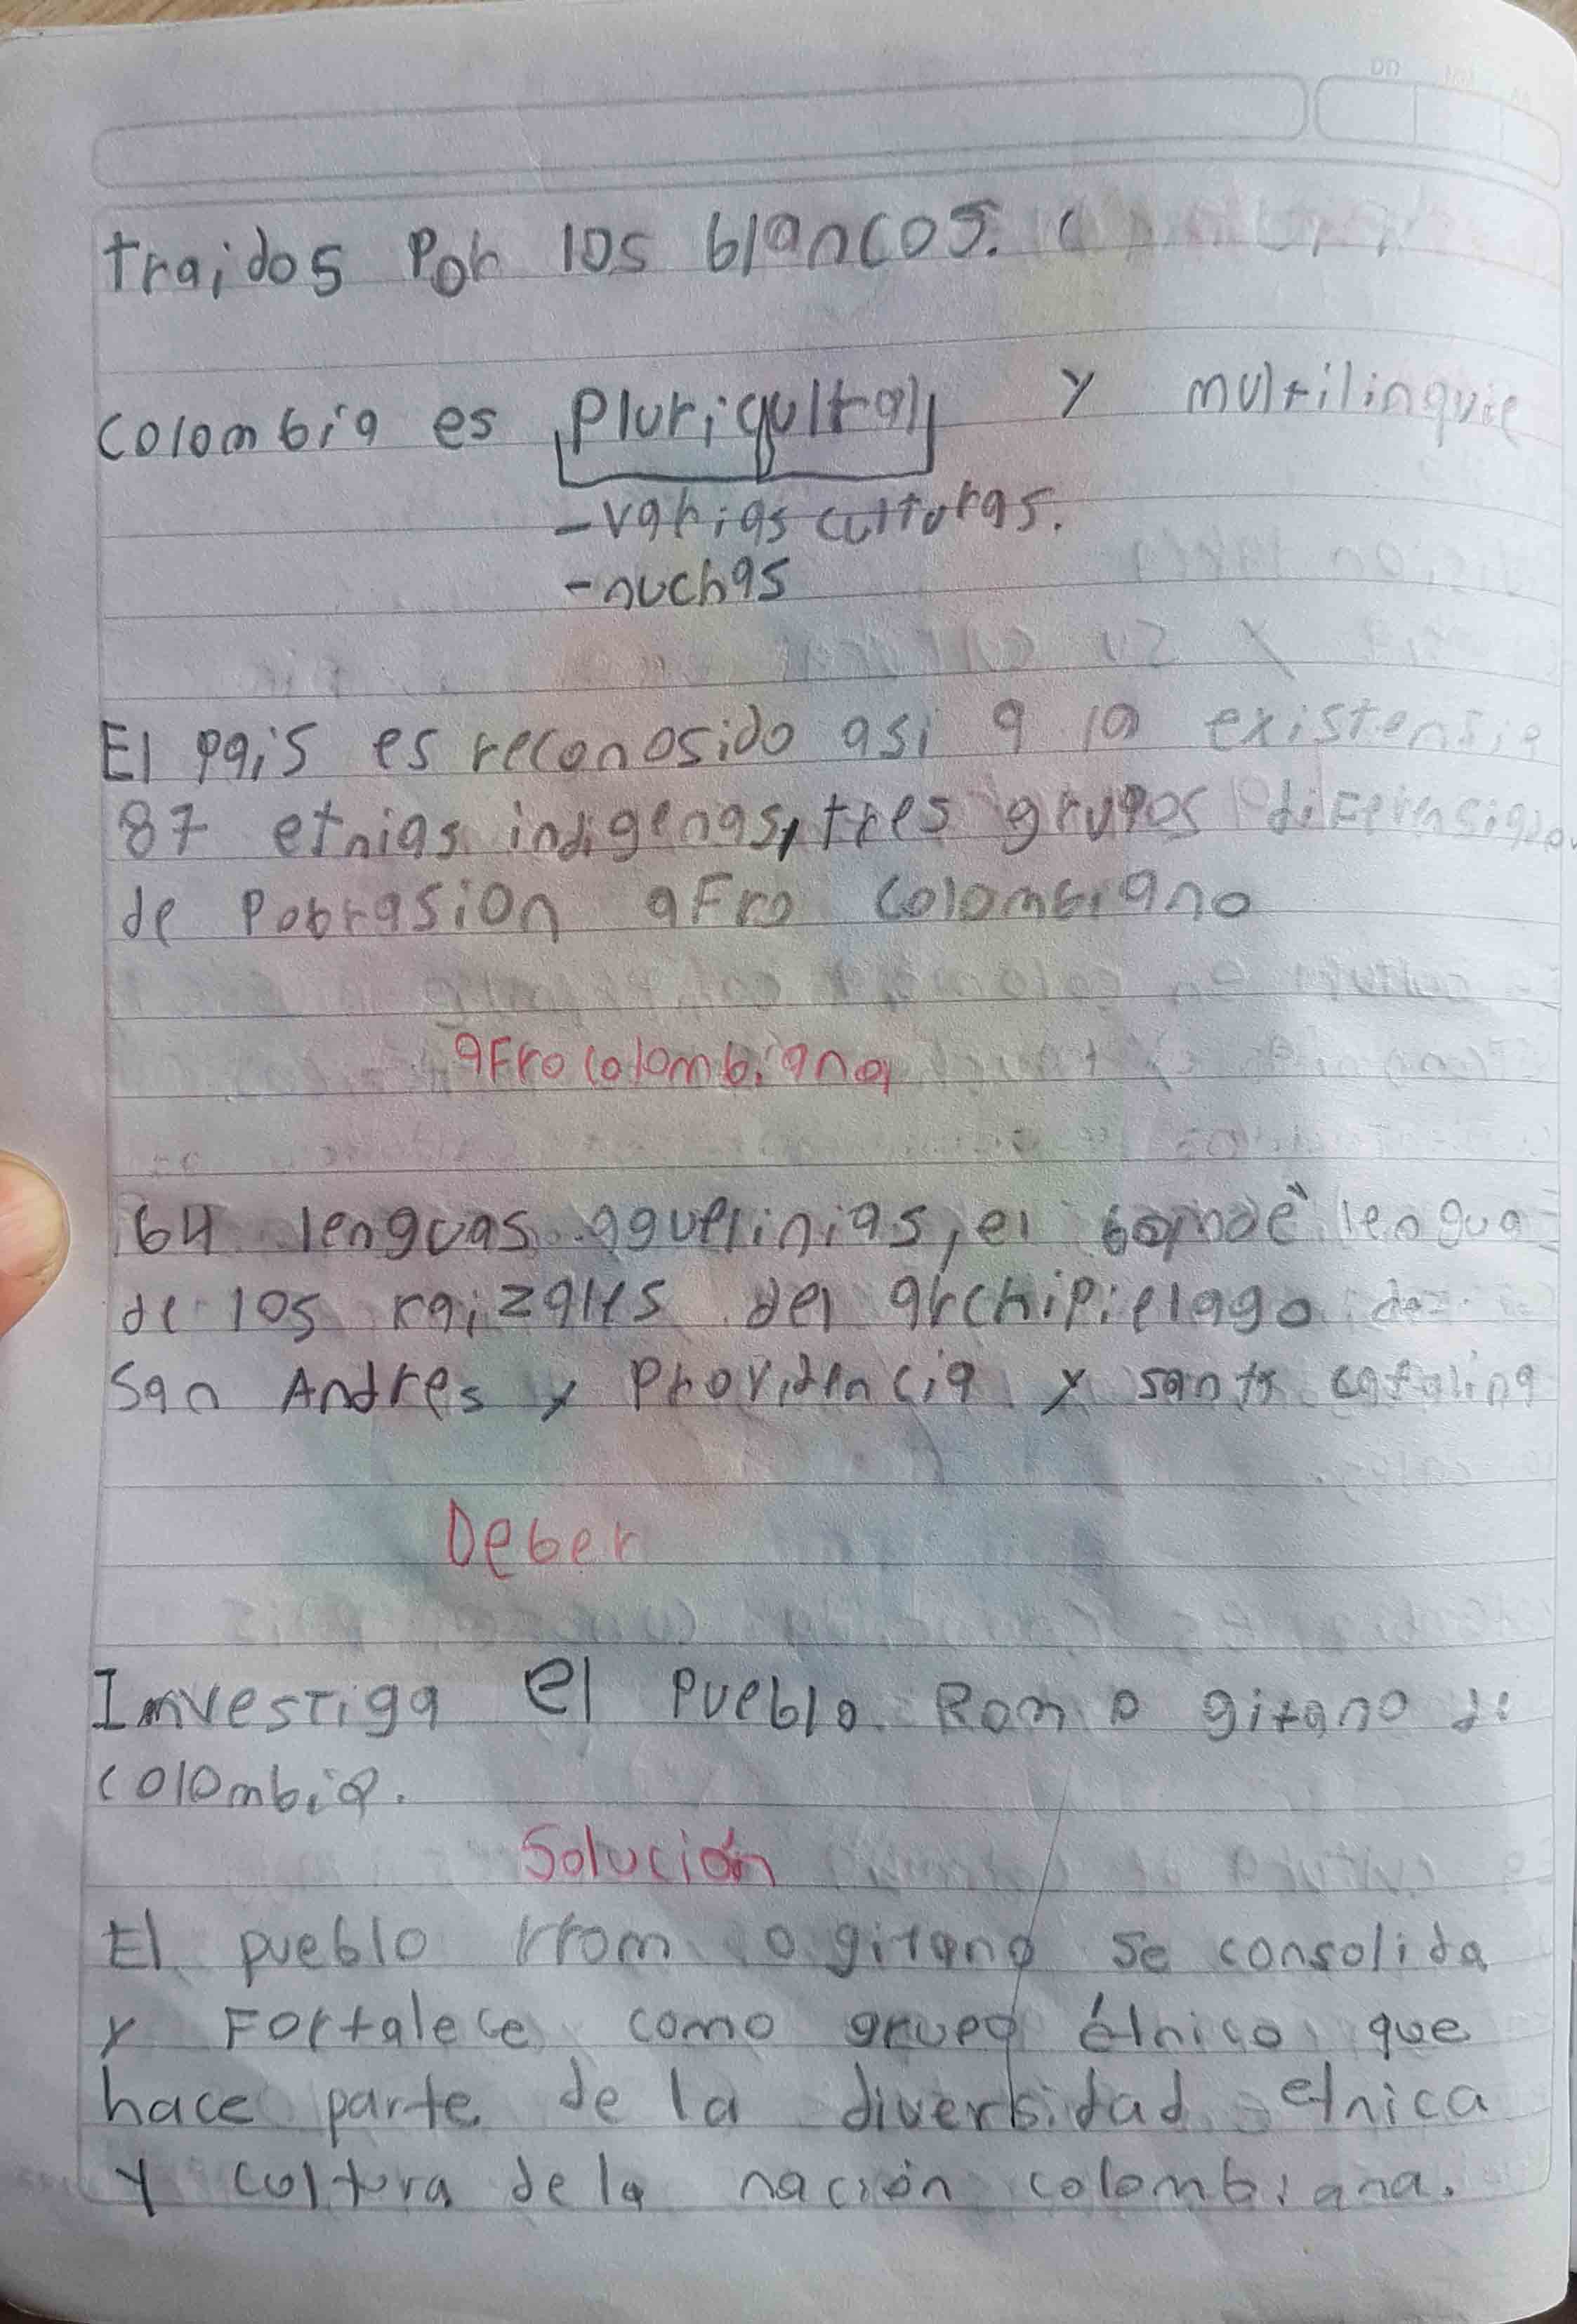 traidos Por los blancos.
colombia es Pluriqultral y multilinguie
- varias culturas.
- nuchas
El pais es reconosido asi a la existensia
87 etnias indigenas, tres grupos diferensiado.
de Pobrasion aFro colombiano
aFro colombiana
64 lenguas el lengua
de los raizales del archipielago de
San Andres y Providencia y santa catalina
Deber
Imvestiga el Pueblo Rom o gitano de
colombia.
Solución
El pueblo rrom o gitano se consolida
y Fortalece como grupo étnico que
hace parte de la diversidad etnica
y coltura de la nación colombiana.